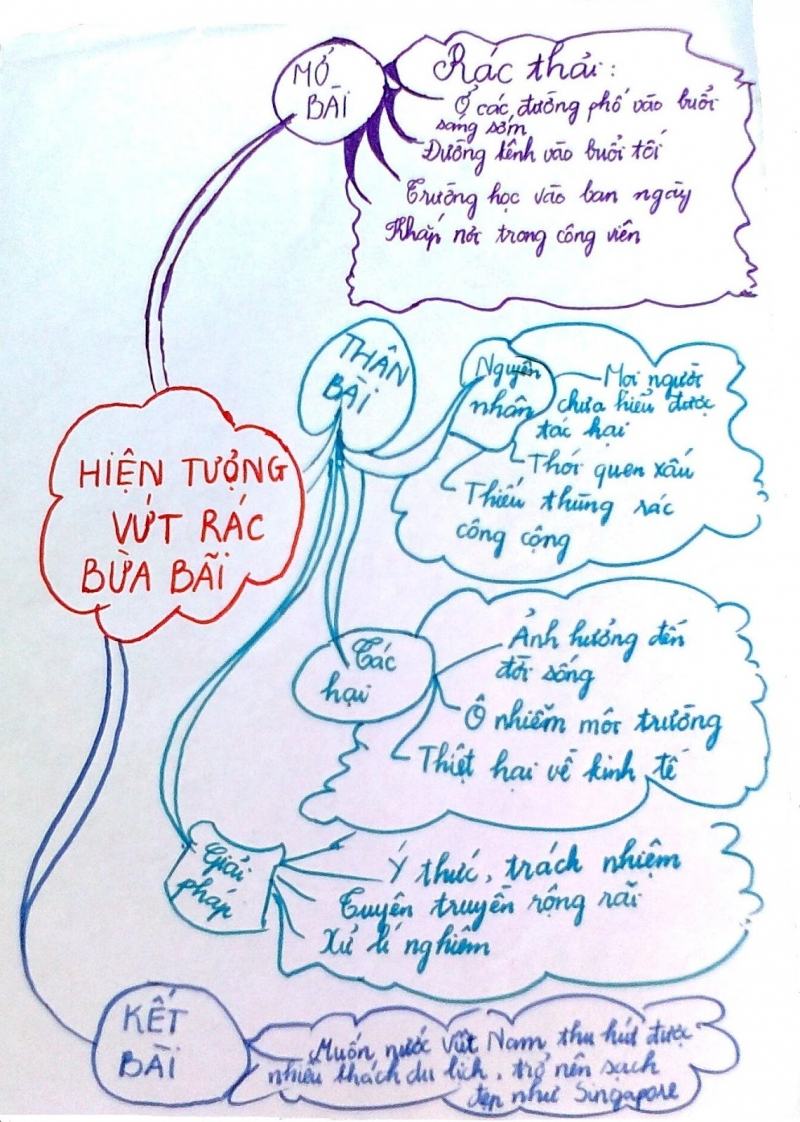 MỞ
BÀI
Rác thải:
Ở các đường phố vào buổi
sáng sớm
Đường kênh vào buổi tối
Trường học vào ban ngày
Khắp nơi trong công viên
HIỆN TƯỢNG
VỨT RÁC
BỪA BÃI
THÂN
BÀI
Nguyên
nhân
Mọi người
chưa hiểu được
tác hại
Thói quen xấu
Thiếu thùng rác
công cộng
Tác
hại
Ảnh hưởng đến
đời sống
Ô nhiễm môi trường
Thiệt hại về kinh tế
Giải
pháp
Ý thức, trách nhiệm
Tuyên truyền rộng rãi
Xử lí nghiêm
KẾT
BÀI
Muốn nước Việt Nam thu hút được
nhiều khách du lịch, trở nên sạch
đẹp như Singapore